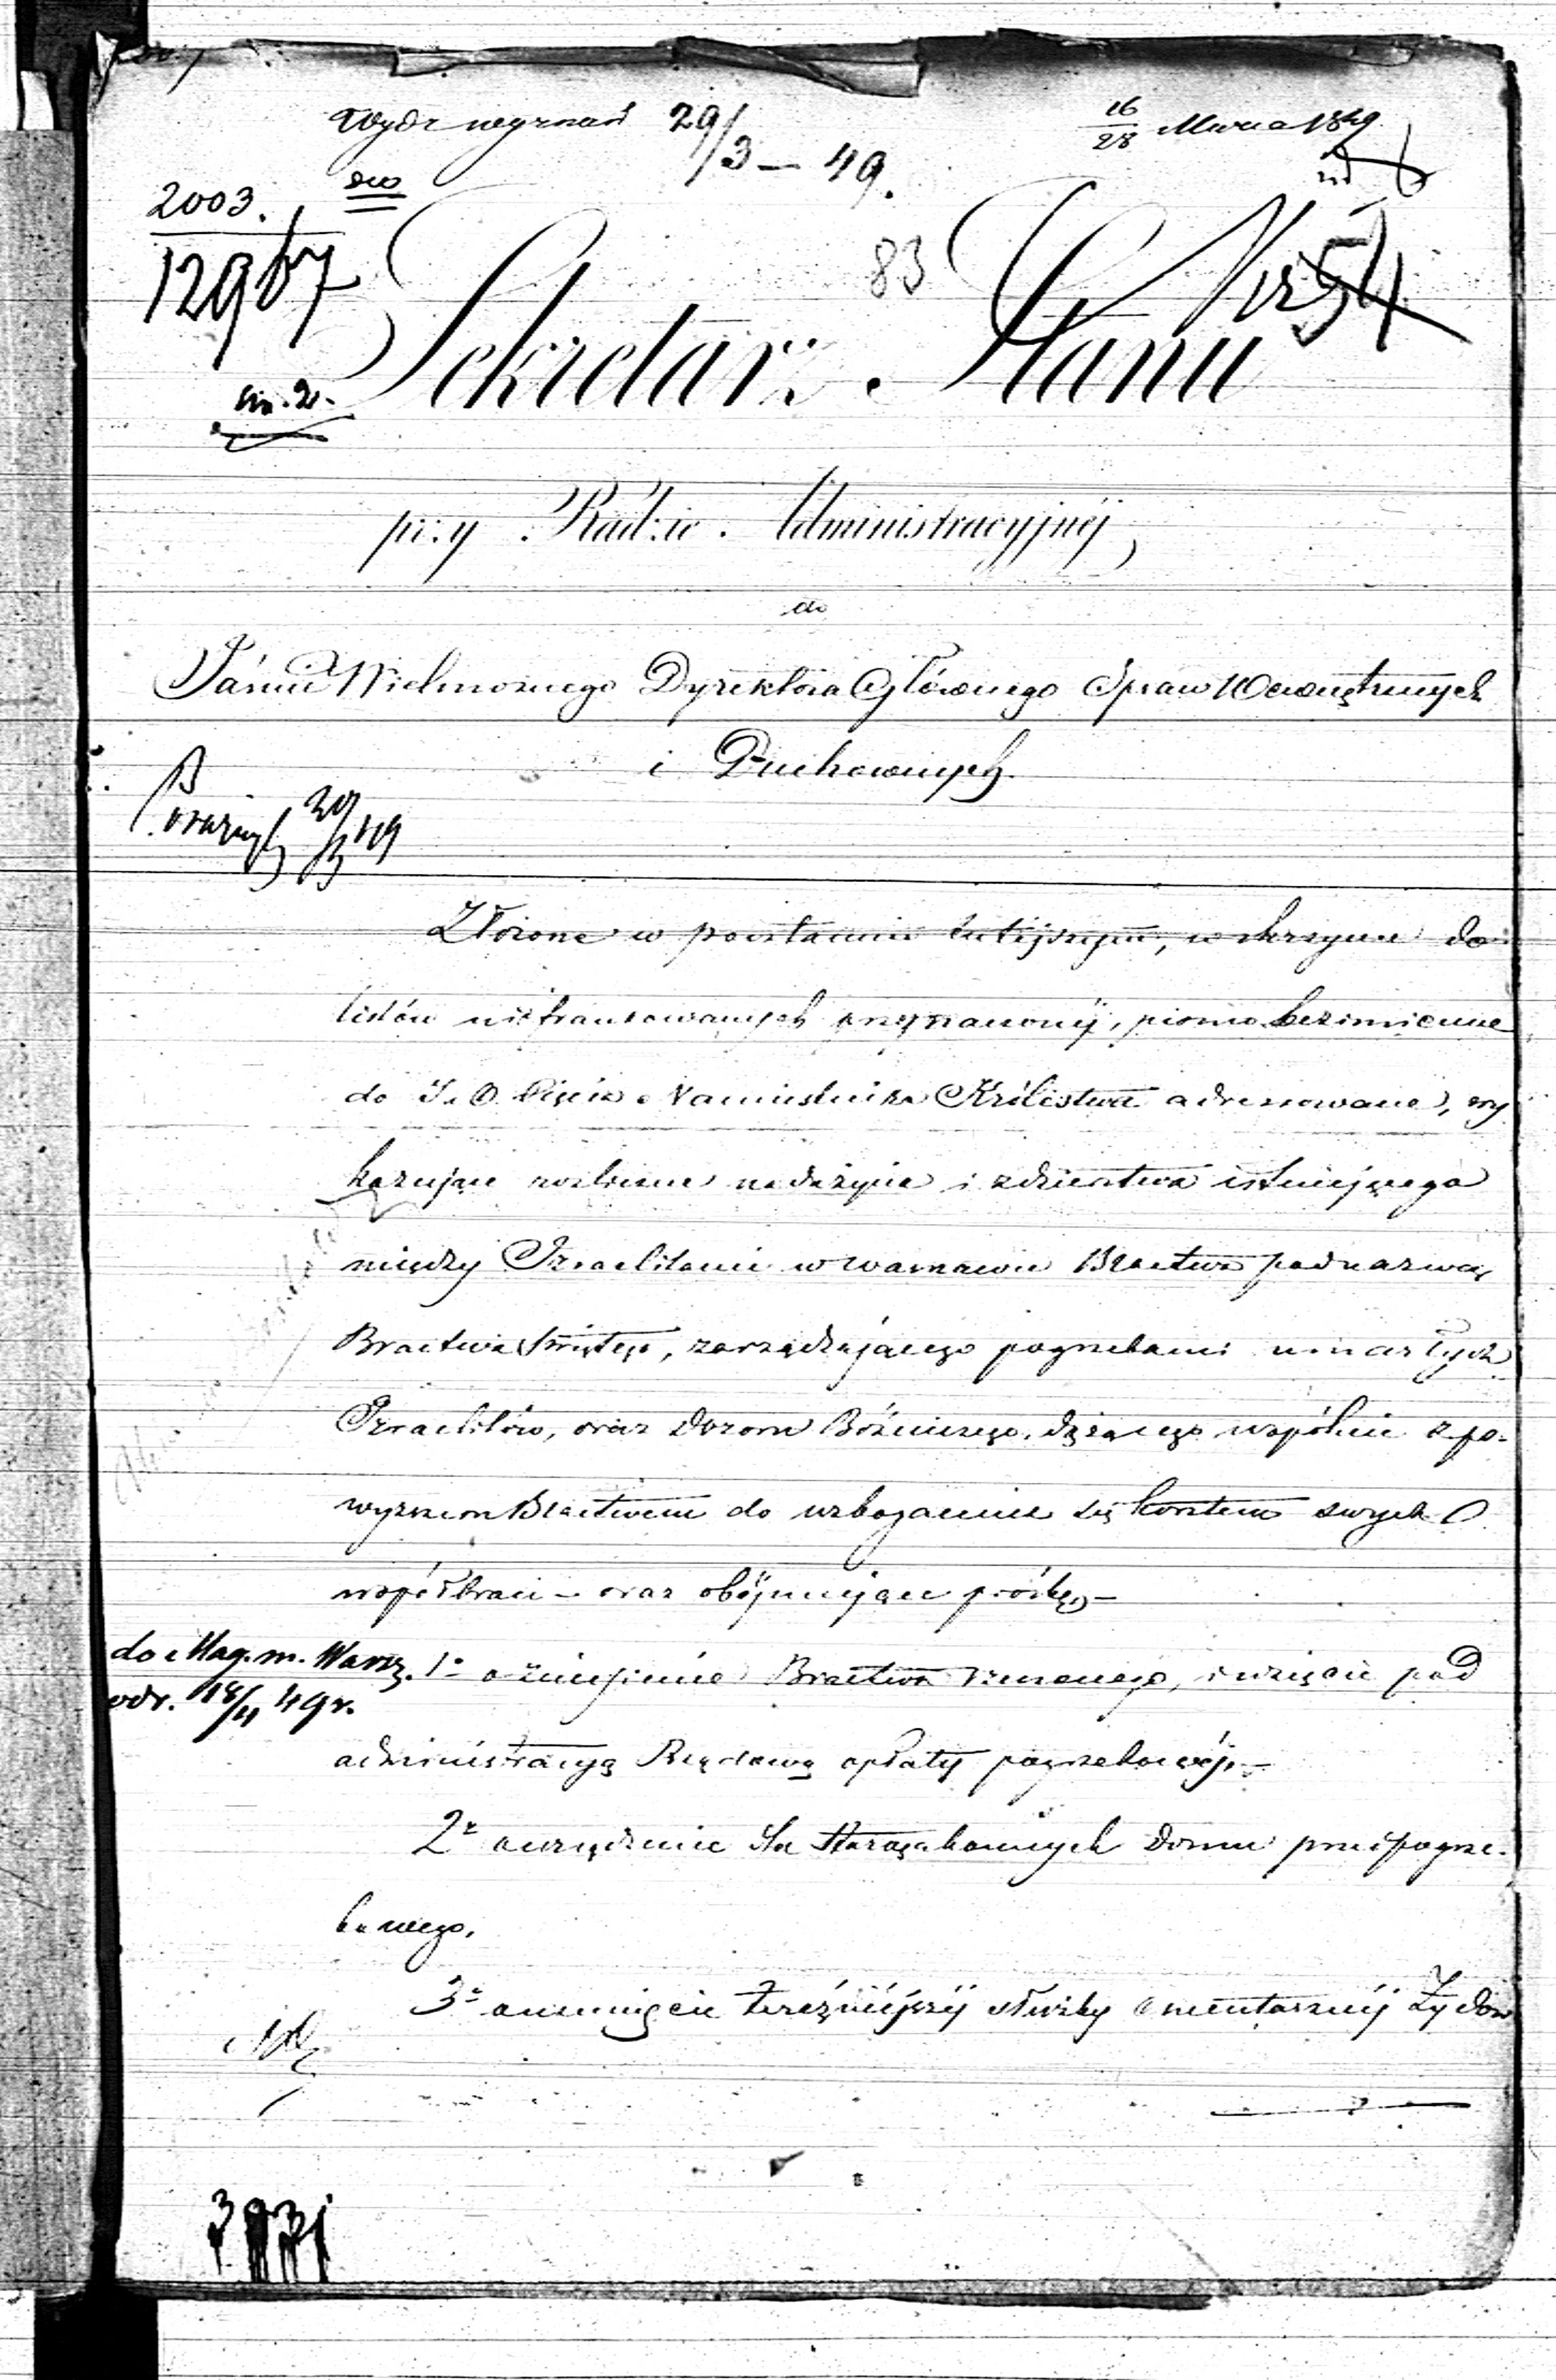 Wydz wyznań 29/3 – 49.
16/28 Marca 1849
2003.
12967
83
Nr 54
Sekretarz Stanu
przy Radzie Administracyjnéj,
do
Jaśnie Wielmożnego Dyrektora Głównego Spraw Wewnętrznych
i Duchownych.
29/3 49
Złożone w pocztamcie tutejszym, w skrzynce do
listów niefrankowanych przeznaczonéj, pismo bezimienne
do J. O. Xięcia Namiestnika Królestwa adressowane, wy
kazujące rozliczne nadużycia i zdzierstwa istniejącego
między Izraelitami w Warszawie Bractwa pod nazwą
Bractwa Świętego, zarządzającego pogrzebami umarłych
Izraelitów, oraz Dozoru Bóżniczego, dążącego wspólnie z po-
wyższem Bractwem do wzbogacenia się kosztem swych
współbraci – oraz obejmujące prośbę –
do Mag. m. Warsz.
odr. 18/4 49 r.
1o o zniesienie Bractwa rzeczonego, i wzięcie pod
administracyą Rządową opłaty pogrzebowéj. –
2o o urządzenie dla Starozakonnych domu przedpogrze-
bowego.
3o o usunięcie tereźniejszéj służby cmentarznéj Żydow
3931